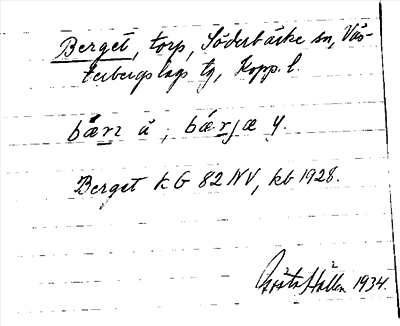 Berget, torp, Söderbärke sn, Väs-
terbergslags tg, Kopp. l.
bær̲z å ; bær̲jæ y.
Berget KG 82 NV, kb 1928.
Gösta Hållen 1934.